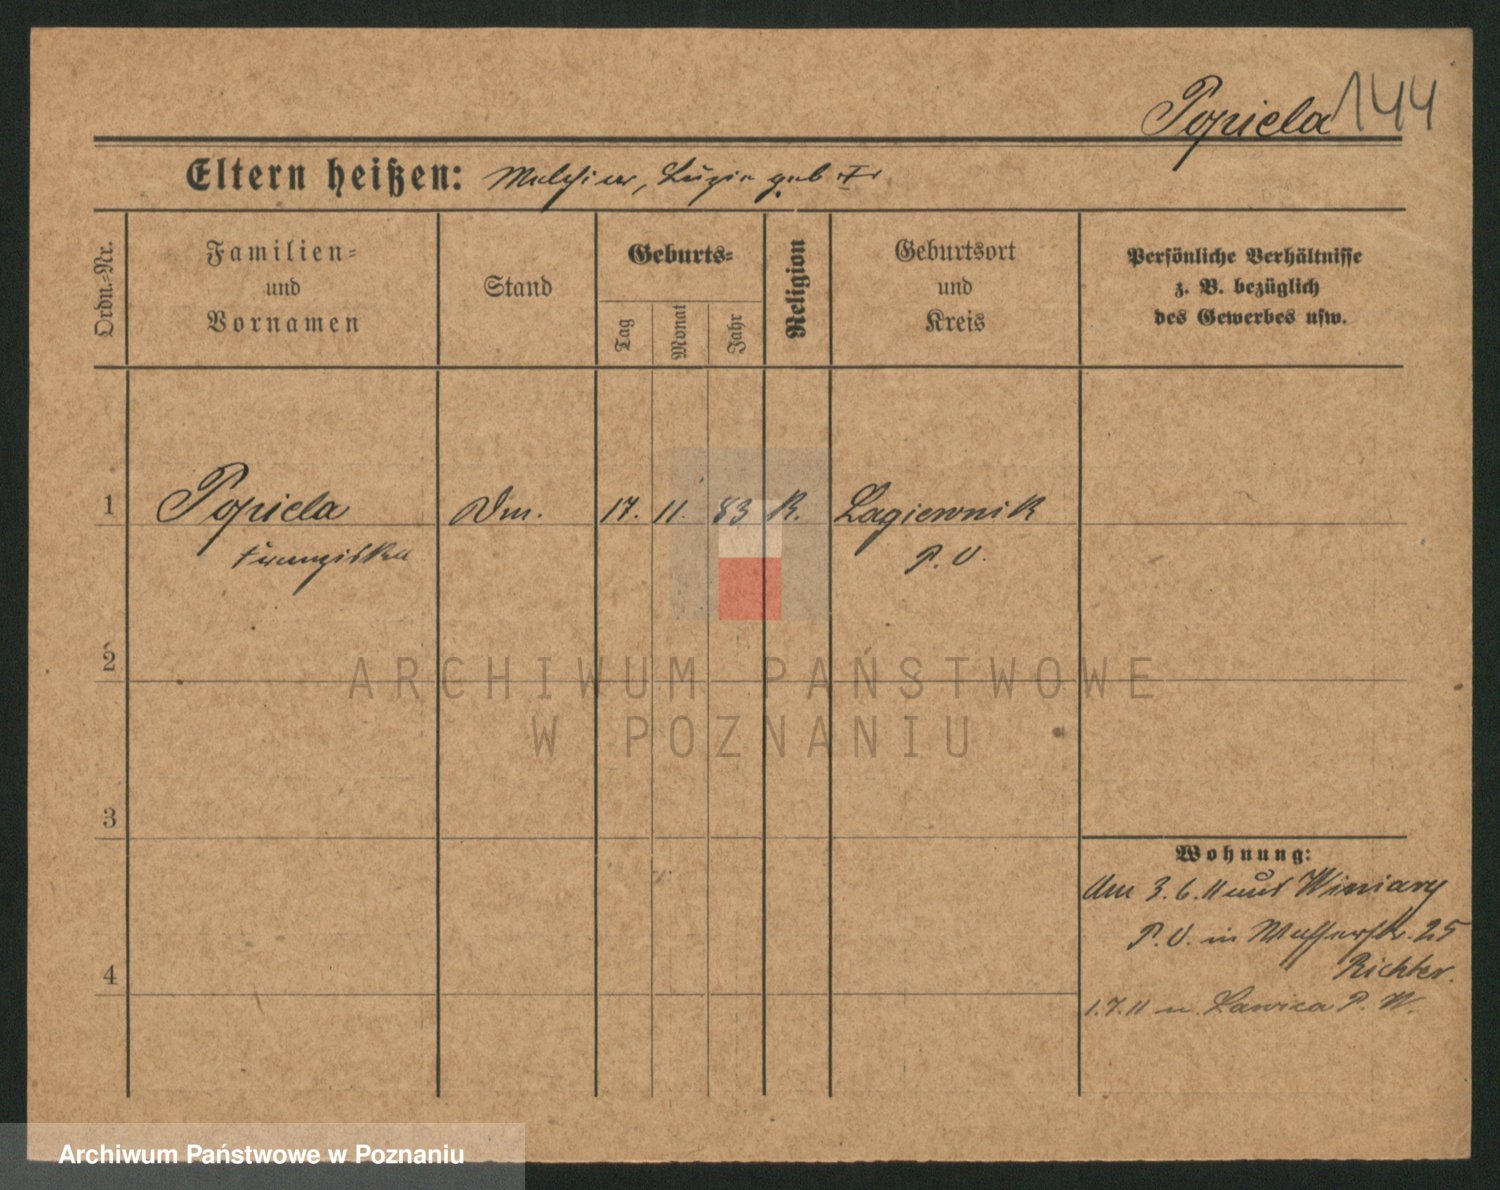 Popiela 144
Eltern heißen: Melchior, Luzie geb
Ordn.-Nr.
Familien-
und
Vornamen
Stand
Geburts-
Tag
Monat
Jahr
Religion
Geburtsort
und
Kreis
Persönliche Verhältnisse
z. B. bezüglich
des Gewerbes usw.
1 Popiela Dm. 17. 11. 83 K. Lagiewnik
Franziska P. O.
2
3
4
ARCHIWUM PAŃSTWOWE
W POZNANIU
Wohnung:
Am 3.6.11 aus Winiary
P. O. in Wasserstr. 25
Richter.
1.7.11 n. Lawica P. W.
Archiwum Państwowe w Poznaniu